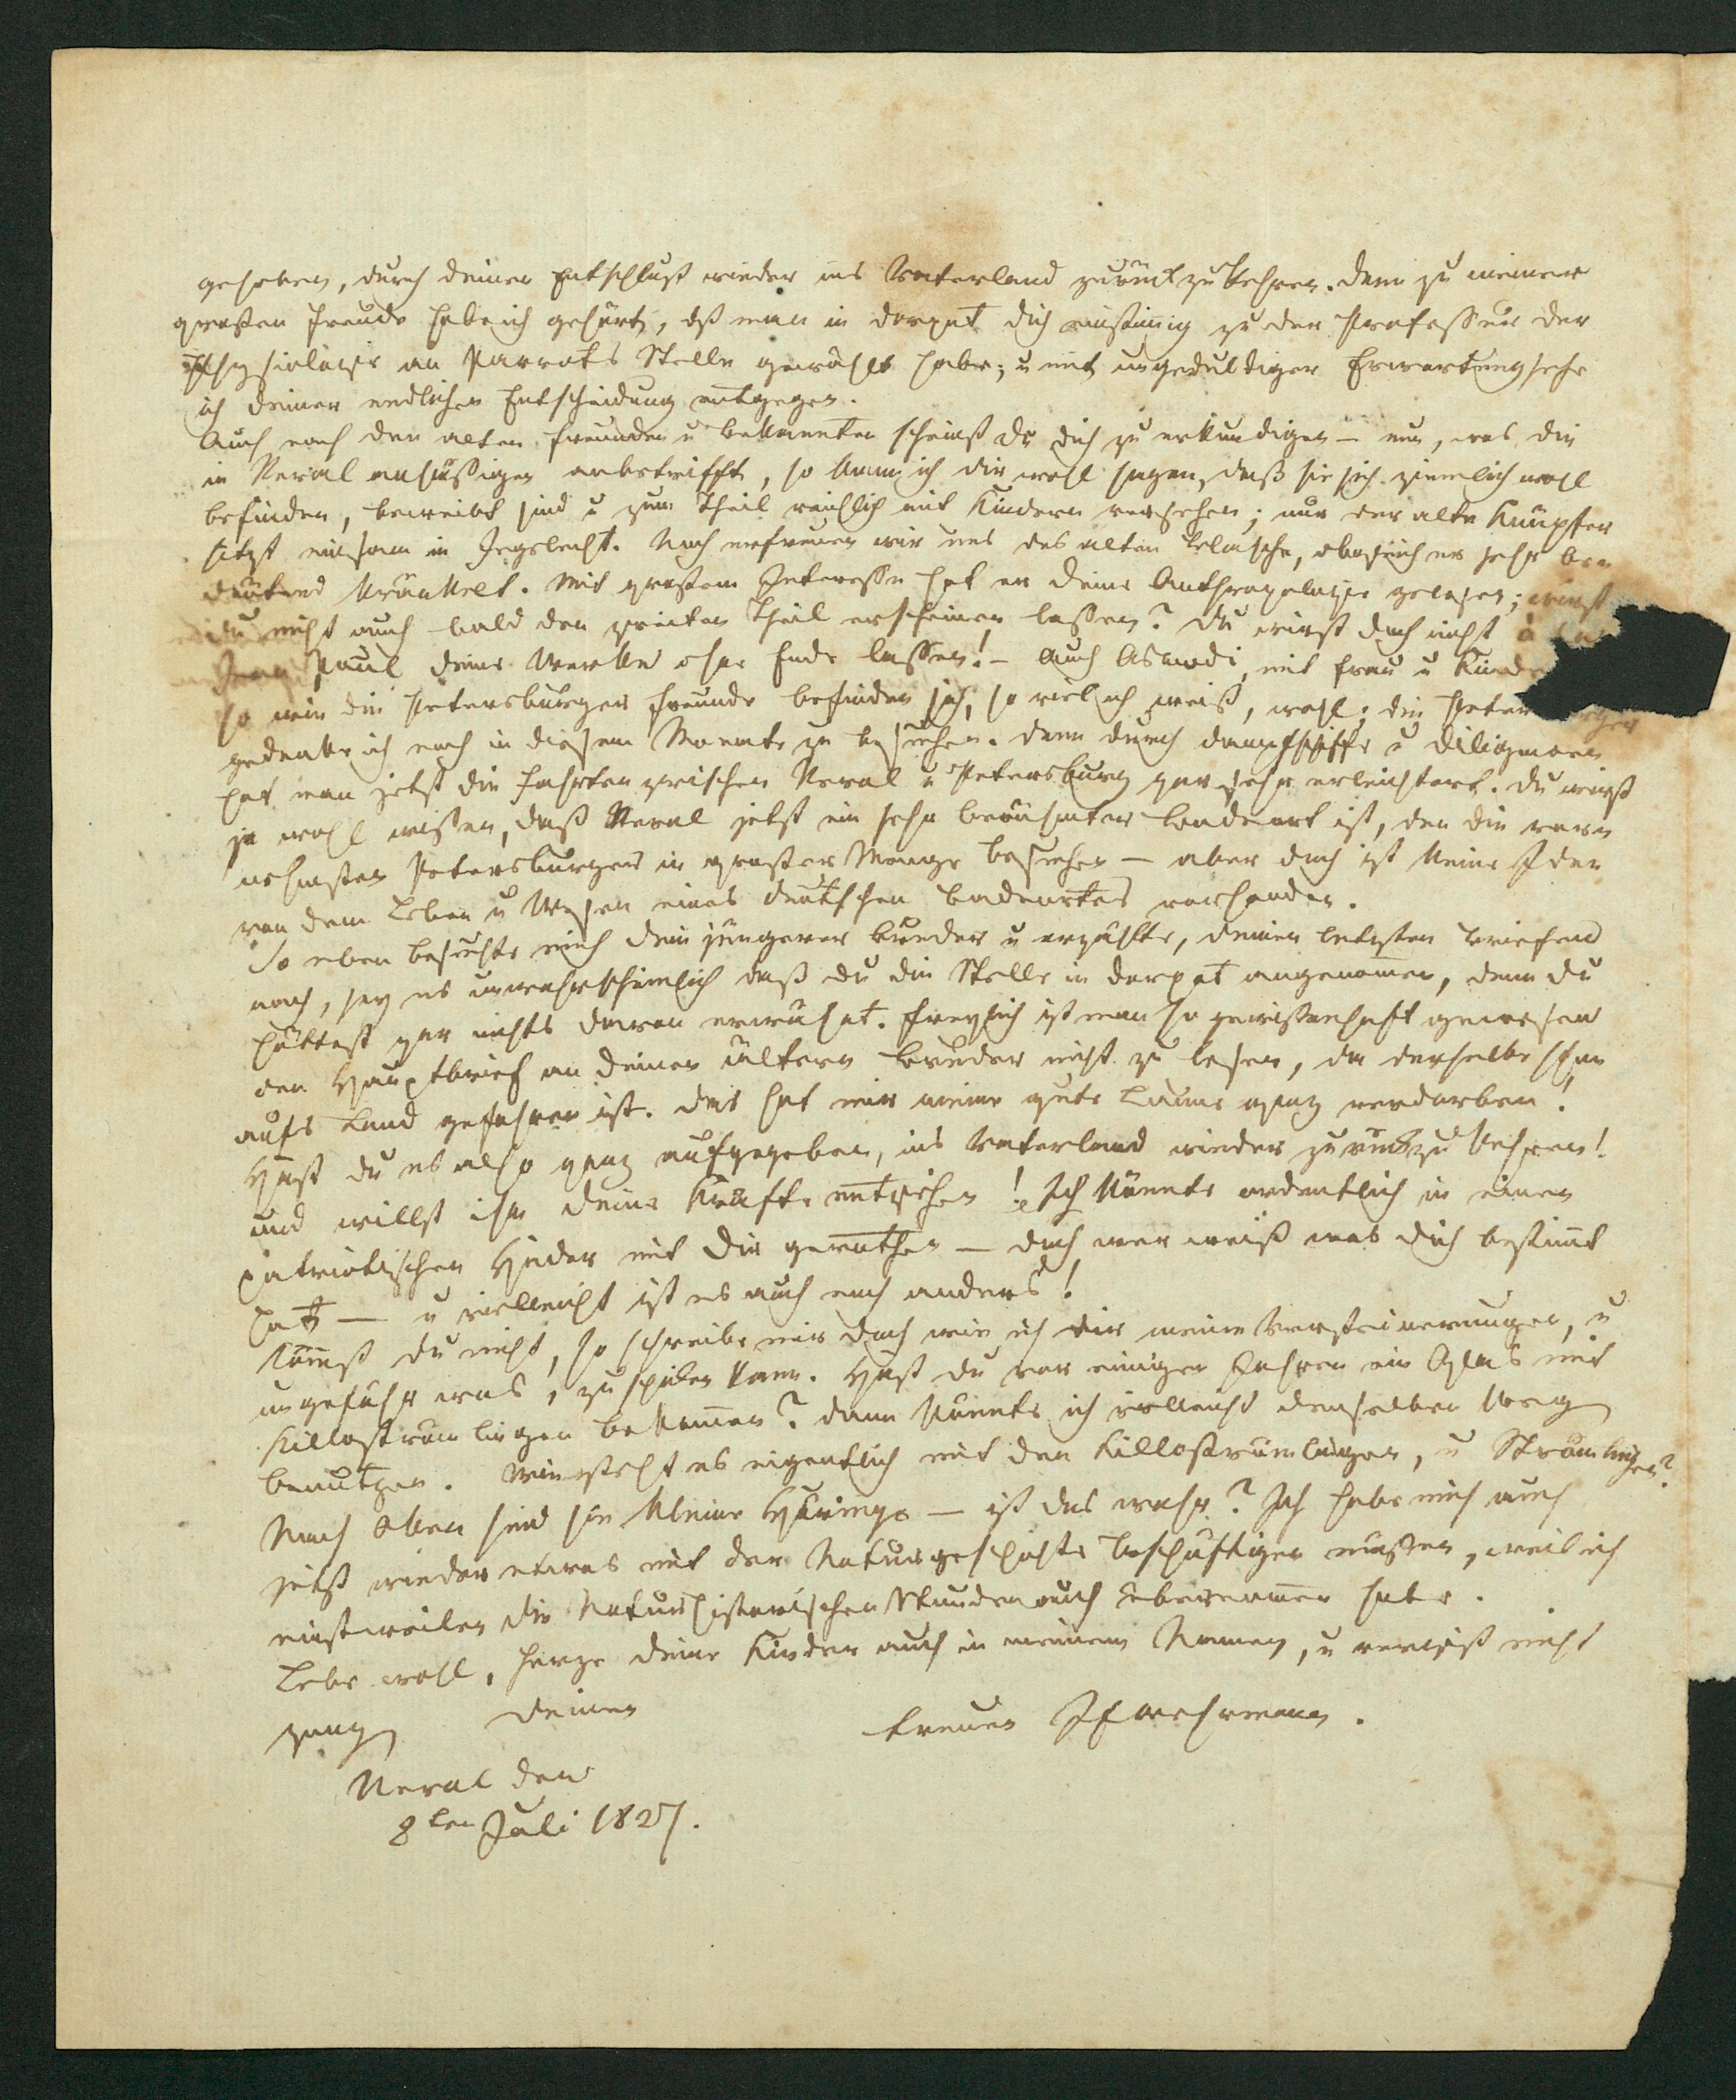 gehoben, durch deinen Entschluß wieder ins Vaterland zurückzukehren. Denn zu meiner
großen Freude habe ich gehört, daß man in Dorpat dich einstimmig zu der Professur der
Physiologie an Parrots Stelle gewählt habe; u mit ungeduldiger Erwartung sehe
ich deiner endlichen Entscheidung entgegen.
Auch nach den alten Freunden u Bekannten scheinst du dich zu erkundigen – nun, was die
in Reval ansäßigen anbetrifft, so kann ich dir wohl sagen, daß sie sich ziemlich wohl
befinden, beweibt sind u zum Theil reichlich mit Kindern versehen; nur der alte Knüpffer
sitzt einsam in Jegelecht. Noch erfreuen wir uns des alten, obgleich er sehr be-
deutend kränkelt. Mit großem Interesse hat er deine Anthropologie gelesen; wirst
du nicht auch bald den zweiten Theil erscheinen lassen? Du wirst doch nicht à la
Jean Paul deine Werke ohne Ende lassen! – Auch Asmodi mit Frau u Kinde
so wie die Petersburger Freunde befinden sich, so viel ich weiß, wohl; die Petersburger
gedenke ich noch in diesem Monate zu besuchen. Denn durch Dampfschiffe u Diligencen
hat man jetzt die Fahrten zwischen Reval u Petersburg gar sehr erleichtert. Du wirst
ja wohl wissen, daß Reval jetzt ein sehr berühmter Badeort ist, den die vor-
nehmsten Petersburger in großer Menge besuchen – aber doch ist keine Idee
von dem Leben u Wesen eines deutschen Badeortes vorhanden.
So eben besuchte mich dein jüngerer Bruder u erzählte, deinen letzten Briefen
nach, sey es unwahrscheinlich daß du die Stelle in Dorpat angenommen, denn du
hättest gar nichts davon erwähnt. Freylich ist man so gewissenhaft gewesen
den Hauptbrief an deinen ältern Bruder nicht zu lesen, da derselbe schon
aufs Land gefahren ist. Das hat mir meine gute Laune ganz verdorben!
Hast du es also ganz aufgegeben, ins Vaterland wieder zurückzukehren!
und willst ihm deine Kräfte entziehen! Ich könnte ordentlich in einen
patriotischen Hader mit dir gerathen – doch wer weiß was dich bestimmt
hat – u vielleicht ist es auch noch anders!
Kömmst du nicht, so schreibe mir doch wie ich dir meine Versteinerungen, u
ungefähr was, zuspielen kann. Hast du vor einigen Jahren ein Glas mit
Killoströmlingen bekommen? dann könnte ich vielleicht denselben Weg
benutzen. Wie steht es eigentlich mit den Killoströmlingen, u Strömlingen?
Nach Oken sind sie kleine Häringe – ist das wahr? Ich habe mich auch
jetzt wieder etwas mit der Naturgeschichte beschäftigen müssen, weil ich
einstweilen die Naturhistorischen Stunden auch übernommen habe.
Lebe wohl, herze deine Kinder auch in meinem Namen, u vergiß nicht
ganz deinen treuen Wehrmann.
Reval den
8ten Juli 1827.